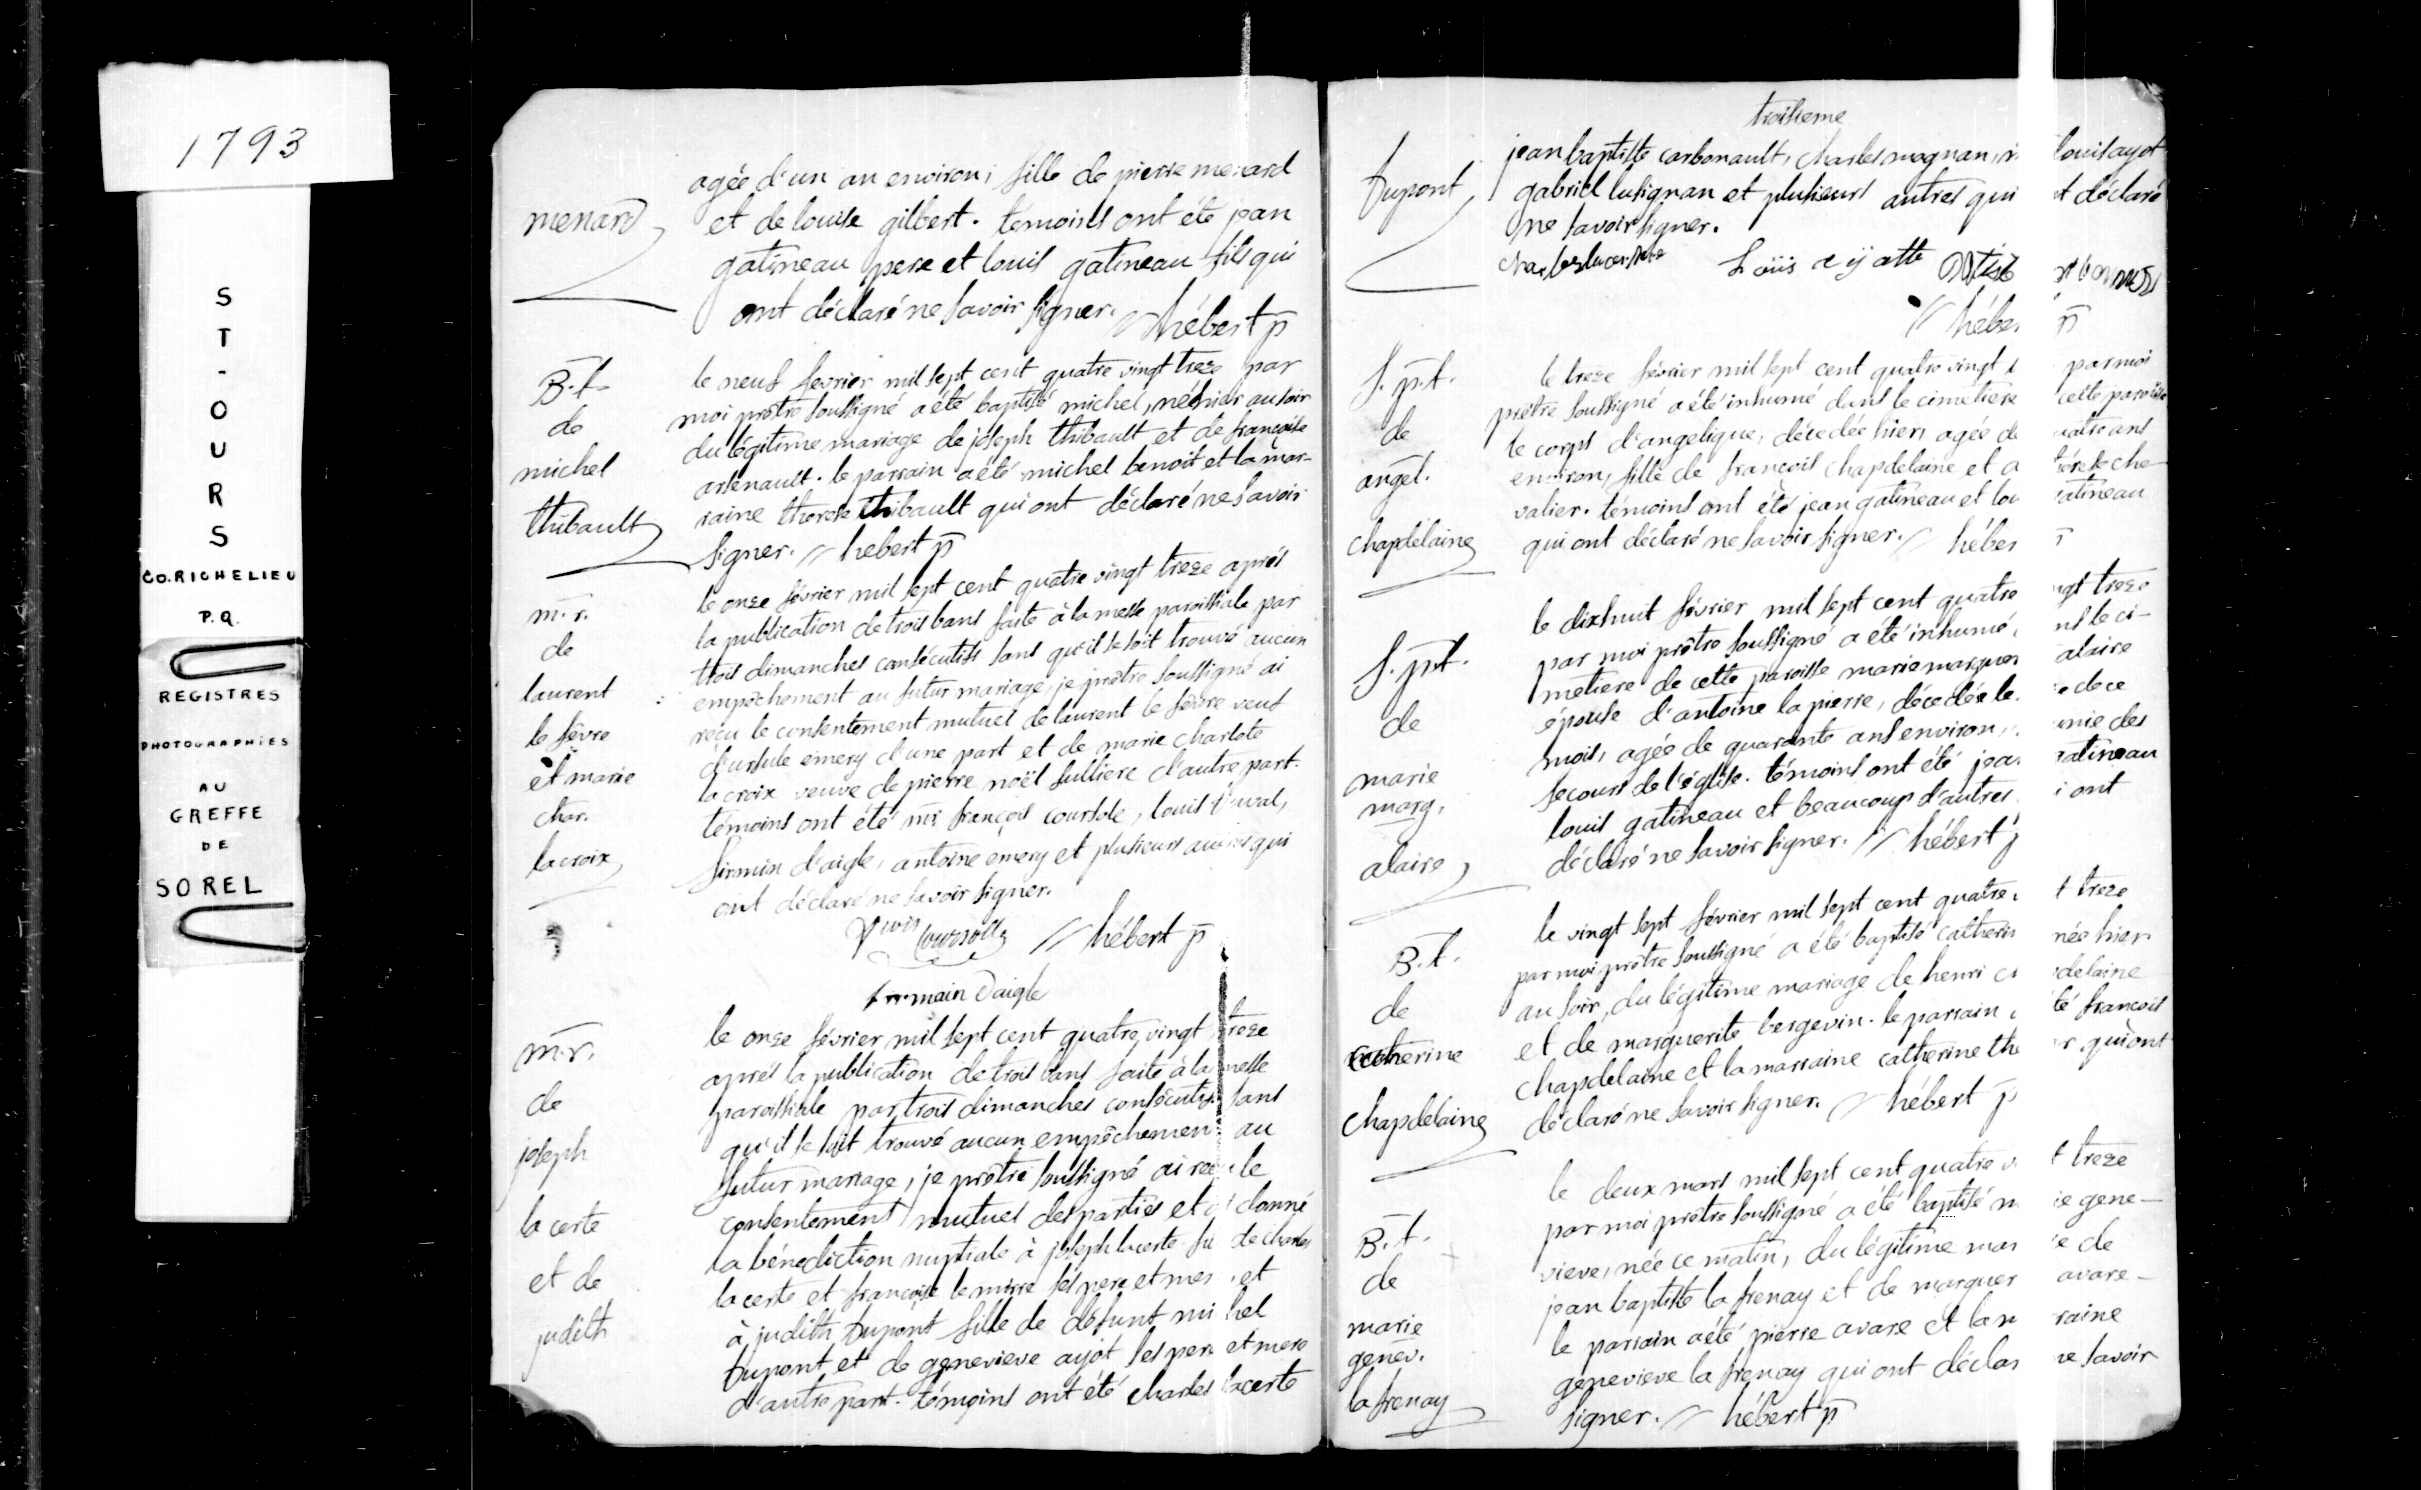 1793
ST-OURS
CO. RICHELIEU
P.Q.
REGISTRES
PHOTOGRAPHIES
AU
GREFFE
DE
SOREL
menard
agée d'un an environ, fille de pierre menard
et de louise gilbert. témoins ont été jean
gatineau pere et louis gatineau fils qui
ont déclaré ne savoir signer. // hébert p
B.t.
de
michel
thibault
le neuf février mil sept cent quatre vingt treze par
moi prêtre soussigné a été baptisé michel, né hier au soir
du légitime mariage de joseph thibault et de françoise
arsenault. le parrain a été michel benoit et la mar-
raine therese thibault qui ont déclaré ne savoir
signer. // hebert p
m.r.
de
laurent
le fêvre
et marie
char.
lacroix
le onze février mil sept cent quatre vingt treze aprés
la publication de trois bans faite à la messe paroissiale par
trois dimanches consécutifs sans qu'il se soit trouvé aucun
empêchement au futur mariage, je prêtre soussigné ai
reçu le consentement mutuel de laurent le fêvre veuf
d'ursule emery d'une part et de marie charlote
la croix veuve de pierre noël sulliere d'autre part.
témoins ont été mr françois coursole, louis duval,
firmin d'aigle, antoine emery et plusieurs autres qui
ont déclaré ne savoir signer.
Coursolle // hébert p
firmain Daigle
m.r.
de
joseph
la certe
et de
judith
le onze février mil sept cent quatre vingt treze
aprés la publication de trois bans faite à la messe
paroissiale par trois dimanches consécutifs sans
qu'il se soit trouvé aucun empêchement au
futur mariage, je prêtre soussigné ai reçu le
consentement mutuel des parties et ai donné
la bénédiction nuptiale à joseph lacerte fils de charles
lacerte et françoise le mirre ses pere et mere, et
à judith Dupont fille de défunt michel
Dupont et de genevieve ayot ses pere et mere
d'autre part. témoins ont été charles lacerte
troisieme
Dupont
jean baptiste carbonault, charles magnan, louis ayot
gabriel lusignan et plusieurs autres qui ont déclaré
ne savoir signer.
charles lacerte Loüis ayotte
// hébert p
S.p.t.
de
angel.
chapdelaine
le treze février mil sept cent quatre vingt par moi
prêtre soussigné a été inhumé dans le cimetiere cette paroisse
le corps d'angelique, décedée hier, agée de quatre ans
environ, fille de françois chapdelaine et de therese che-
valier. témoins ont été jean gatineau et louis gatineau
qui ont déclaré ne savoir signer. // hébert p
S.p.t.
de
marie
marg.
alaire
le dixhuit février mil sept cent quatre vingt treze
par moi prêtre soussigné a été inhumé, dans le ci-
metiere de cette paroisse marie marguerite alaire
épouse d'antoine la pierre, décedée le de ce
mois, agée de quarante ans environ, munie des
secours de l'église. témoins ont été jean gatineau
louis gatineau et beaucoup d'autres qui ont
déclaré ne savoir signer. // hébert p
B.t.
de
catherine
chapdelaine
le vingt sept février mil sept cent quatre vingt treze
par moi prêtre soussigné a été baptisé catherine née hier
au soir, du légitime mariage de henri chapdelaine
et de marguerite bergevin. le parrain a été françois
chapdelaine et la marraine catherine qui ont
déclaré ne savoir signer. // hébert p
B.t.
de
marie
genev.
la frenay
le deux mars mil sept cent quatre vingt treze
par moi prêtre soussigné a été baptisé marie gene-
vieve, née ce matin, du légitime mariage de
jean baptiste la frenay et de marguerite avare-
le parrain a été pierre avare et la marraine
genevieve la frenay qui ont déclaré ne savoir
signer. // hébert p